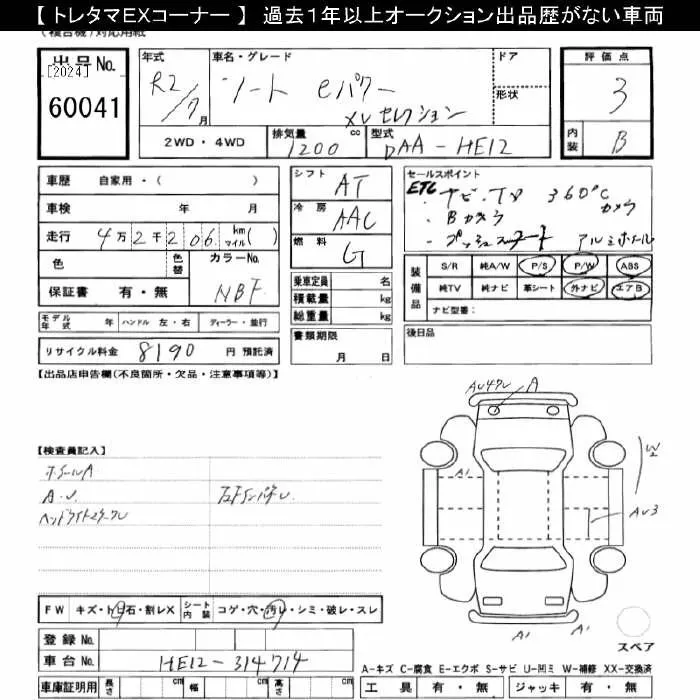 【 トレタマEXコーナー 】 過去1年以上オークション出品歴がない車両
(複合機)対応用紙
出品No.
[2024]
60041
年式
R2/7月
車名・グレード
ノート eパワー
XVセレクション
ドア
形状
評価点
3
内装
B
2WD・4WD
排気量
1200
cc
型式
DAA-HE12
車歴 自家用・( )
車検 年 月
走行 4万2千206 km マイル( )
色
色替
カラーNo.
NBF
保証書 有・無
シフト AT
冷房 AAC
燃料 G
乗車定員 名
積載量 kg
総重量 kg
書類期限
月 日
セールスポイント
ETC ・ナビ・TV 360°C カメラ
・Bカメラ
・プッシュスタート アルミホイール
装備品
S/R 純A/W P/S P/W ABS
純TV 純ナビ 革シート 外ナビ エアB
ナビ型番:
後日品
モデル年式 年 ハンドル 左・右 ディーラー・並行
リサイクル料金 8190 円 預託済
【出品店申告欄(不良箇所・欠品・注意事項等)】
【検査員記入】
ホイールA
A.U.
AU
A
A1
W2
AU3
A1
A1
スペア
FW キズ・トビ石・割レX シート内装 コゲ・穴・汚レ・シミ・破レ・スレ
登録No.
車台No. HE12-314714
車庫証明用 長さ cm 幅 cm 高さ cm
A-キズ C-腐食 E-エクボ S-サビ U-凹ミ W-補修 XX-交換済
工具 有・無 ジャッキ 有・無